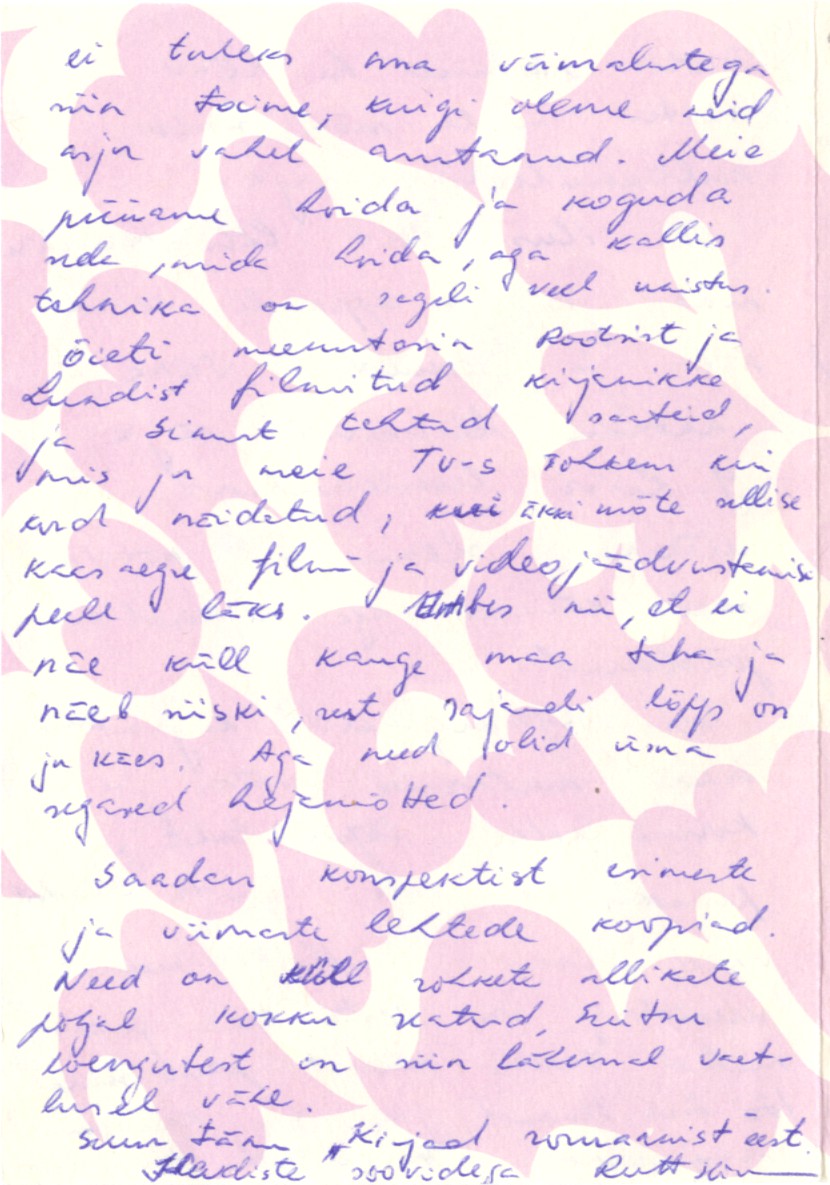 ei tuleks oma võimalustega
siin toime, kuigi oleme neid
asju vahel arutanud. Meie
püüame hoida ja koguda
seda, mida hoida, aga kallis
tehnika on sageli veel unistus.
Õieti meenutasin Rootsist ja
Lundist filmitud kirjanikke
ja Sinust tehtud saateid,
mis ju meie TV-s rohkem kui
kord näidatud, kui äkki mõte sellise
kaasaegse filmi ja videojäädvustamise
peale läks. Umbes nii, et ei
näe küll kauge maa taha ja
näeb siiski, sest sajandi lõpp on
ju käes. Aga need olid üsna
segased hajamõtted.
Saadan konspektist esimeste
ja viimaste lehtede koopiad.
Need on küll rohkete allikate
põhjal kokku seatud,
loengutest on siin lähemal vaat-
lusel vähe.
Suur tänu "Kirjad romaanist" eest.
Headiste soovidega Rutt